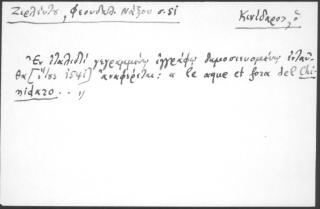 Ζερλέντη, Φεουδαλ. Νάξου σ. 51
Κινίδαρος, ὁ
Ἐν ἰταλιστὶ γεγραμμένῳ ἐγγράφῳ δημοσιευομένῳ ἐνταῦ-
θα [ 1541] ἀναφέρεται: a le aque et fora del Chi-
nidaro . . "